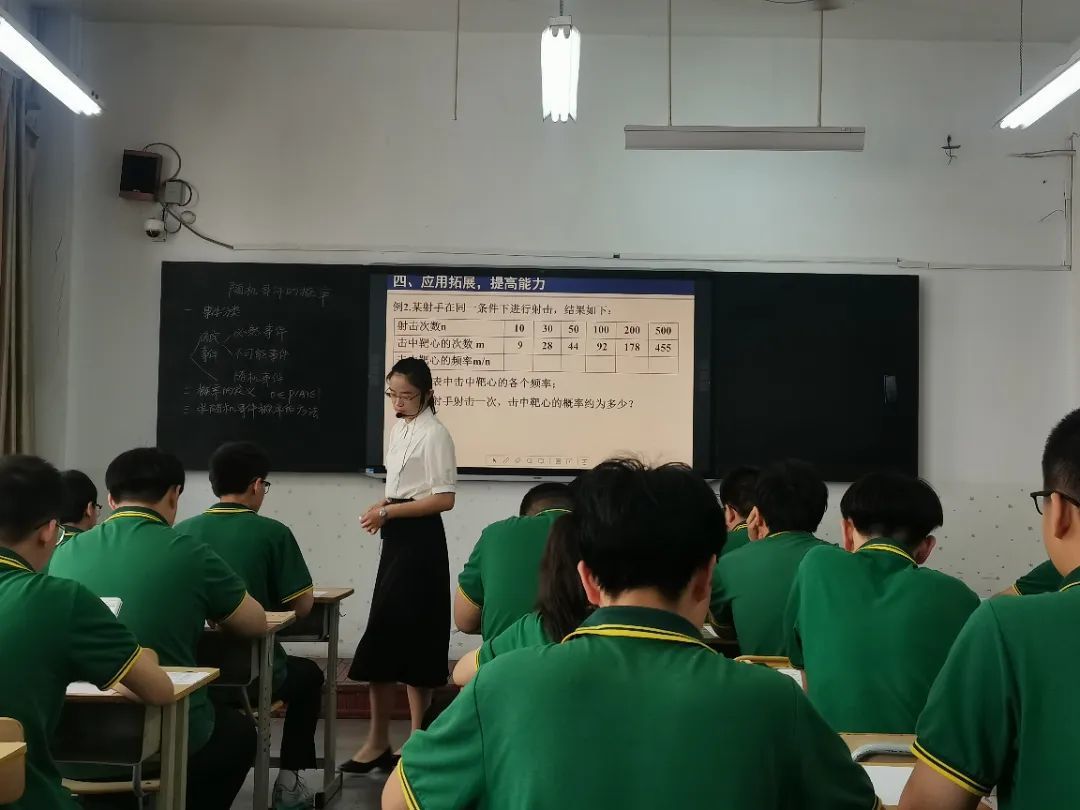 随机事件的概率
一
确定 必然事件
事件 不可能事件
随机事件
二 概率的定义 0≤P(A)≤1
三 求随机事件概率的方法
四、应用拓展，提高能力
例2.某射手在同一条件下进行射击，结果如下：
射击次数n 10 30 50 100 200 500
击中靶心的次数 m 9 28 44 92 178 455
击中靶心的频率m/n
表中击中靶心的各个频率；
射手射击一次，击中靶心的概率约为多少？